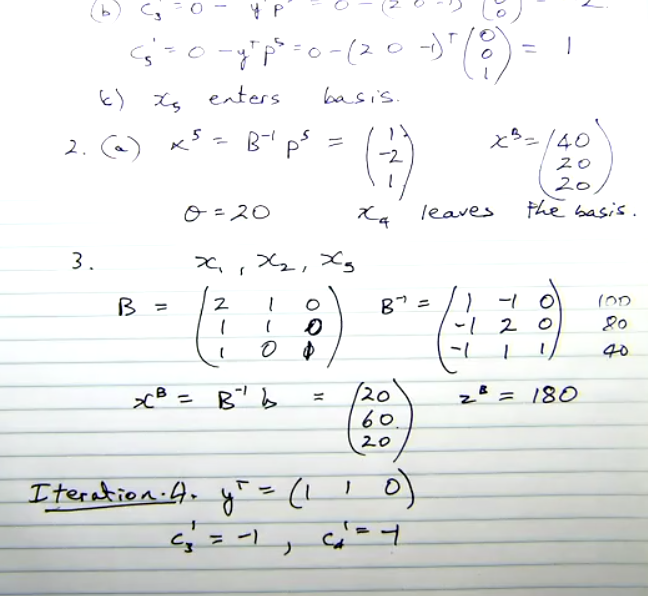 (b) c₃' = 0 - yᵀp = 0 - (2 0 -1) (0) = 2
c₅' = 0 - yᵀp⁵ = 0 - (2 0 -1)ᵀ (0 0 1) = 1
(c) x₅ enters basis.
2. (a) x⁵ = B⁻¹ p⁵ = (1 -2 1) xᴮ = (40 20 20)
θ = 20 x₄ leaves the basis.
3. x₁, x₂, x₅
B = (2 1 0 B⁻¹ = (1 -1 0 100
1 1 0 -1 2 0 80
1 0 1) -1 1 1) 40
xᴮ = B⁻¹ b = (20 60 20) zᴮ = 180
Iteration 4. yᵀ = (1 1 0)
c₃' = -1, c₄' = -1